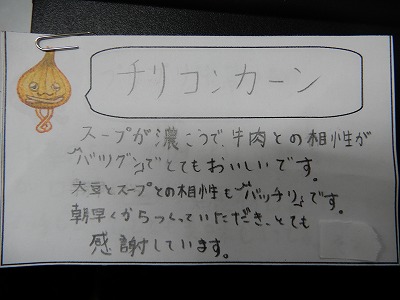 チリコンカーン
スープが濃こうで、牛肉との相性が
『バツグン』でとてもおいしいです。
大豆とスープとの相性も『バッチリ』です。
朝早くからつくっていただき、とても
感謝しています。